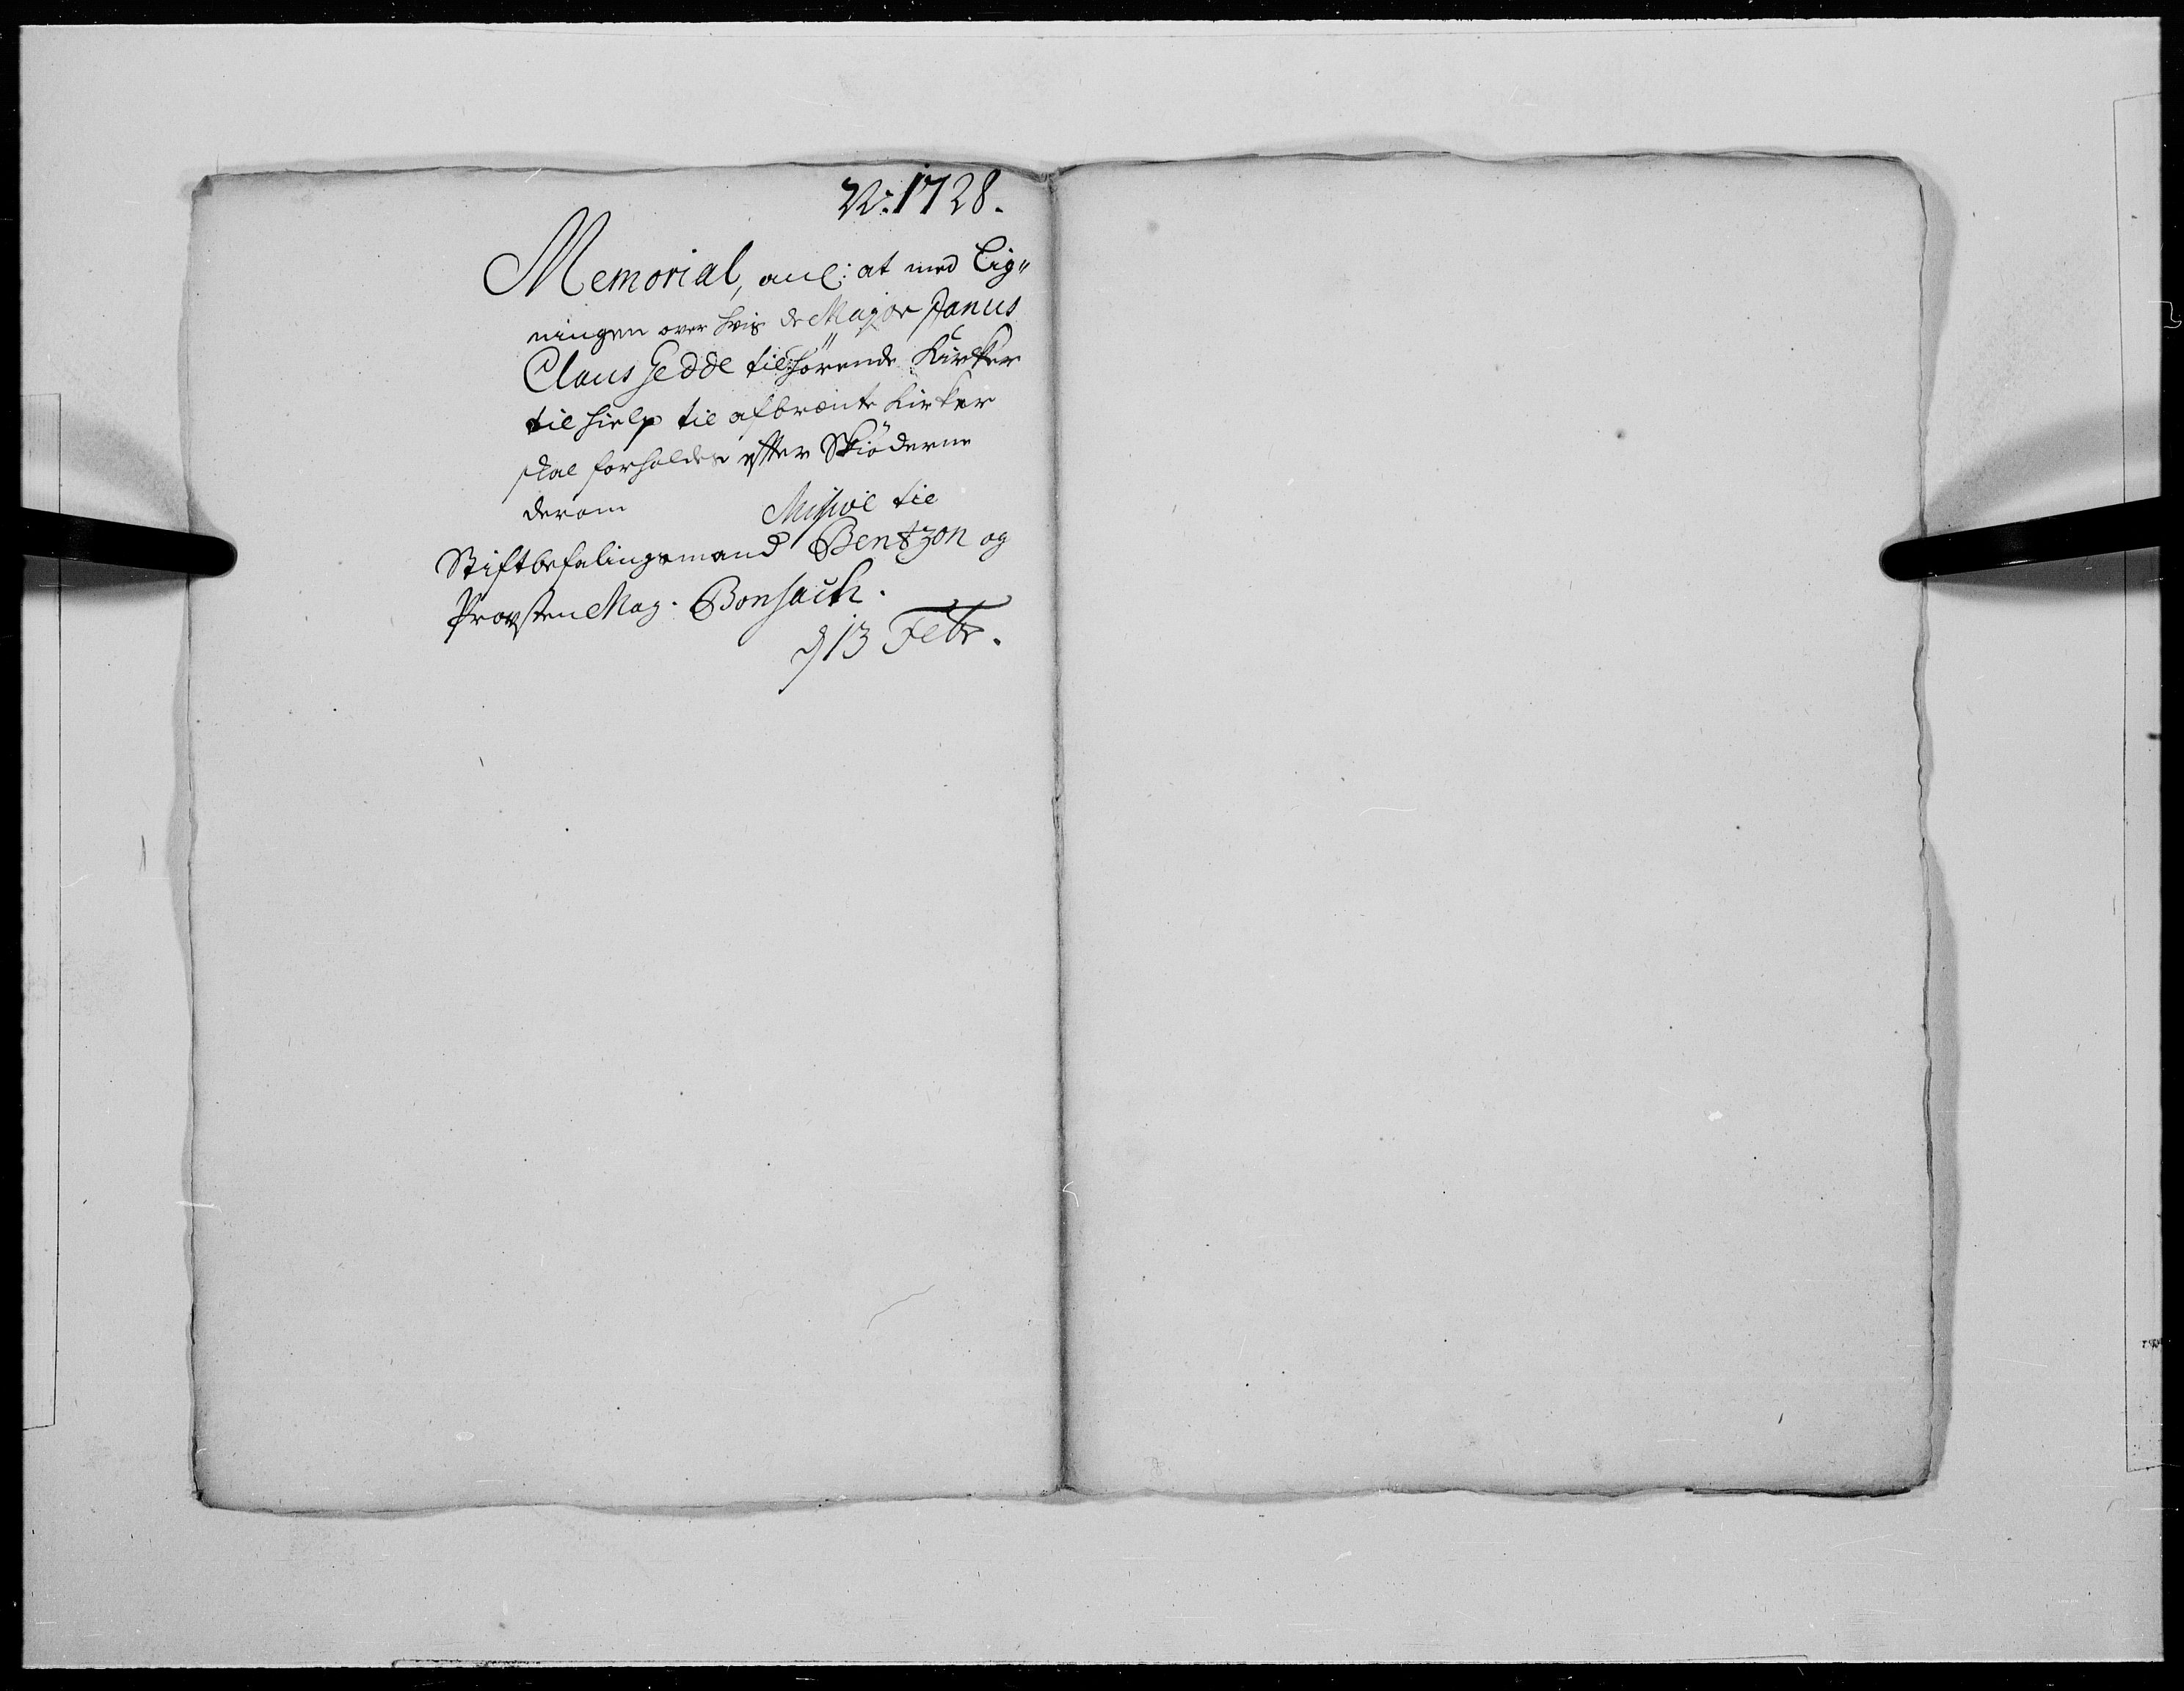 No: 1728.
Memorial, anl: at med Lig„
ningen over hvis de Major Janus
Claus Gedde tilhørende Kircker
til hielp til afbrænte Kirker
skal forholdes efter Skiøderne
derom Missive til
Stiftbefalingsmand Bentzon og
Provsten Mag.
d 13 Febr.